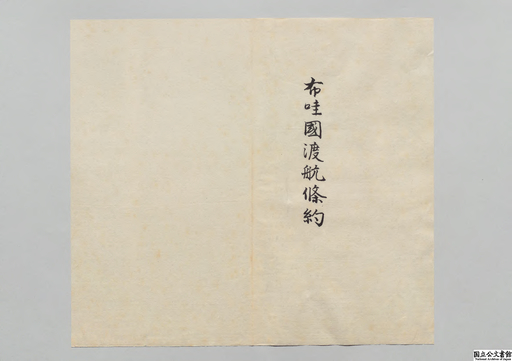 布哇國渡航條約
国立公文書館
National Archives of Japan